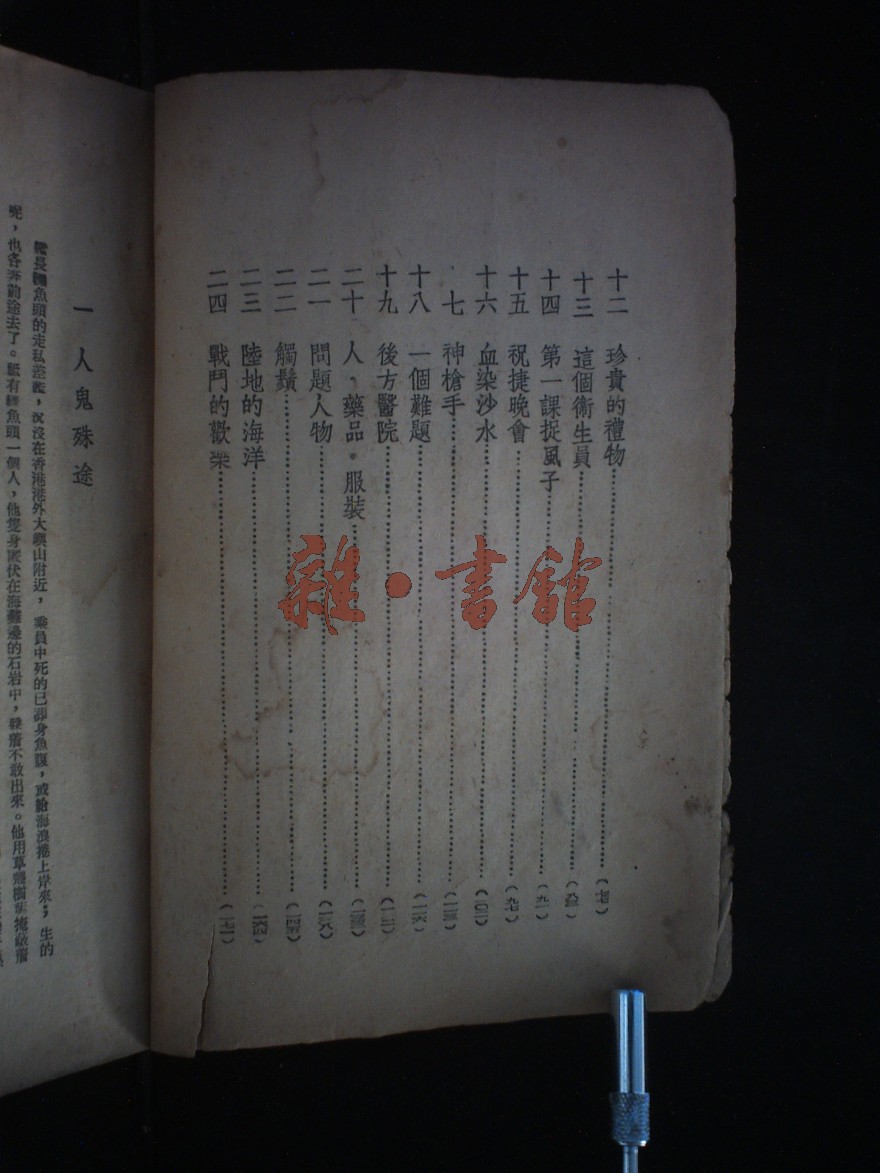 十二 珍貴的禮物
十三 這個衞生員
十四 第一課捉風子
十五 祝捷晚會 (九七)
十六 血染沙水
七 神槍手
十八 一個難題
十九 後方醫院
二十 人・藥品・服裝
二一 問題人物
二二 觸鬚
二三 陸地的海洋
二四 戰鬥的歡樂
雜·書館
一 人鬼殊途
長鱷魚頭的走私 ,沉沒在香港港外大嶼山附近,乘員中死的已葬身魚腹,或給海浪捲上岸來;生的
呢,也各奔前途去了。祇有鱷魚頭一個人,他隻身匿伏在海灘邊的石岩中, 不敢出來。他用草 樹葉掩蔽着